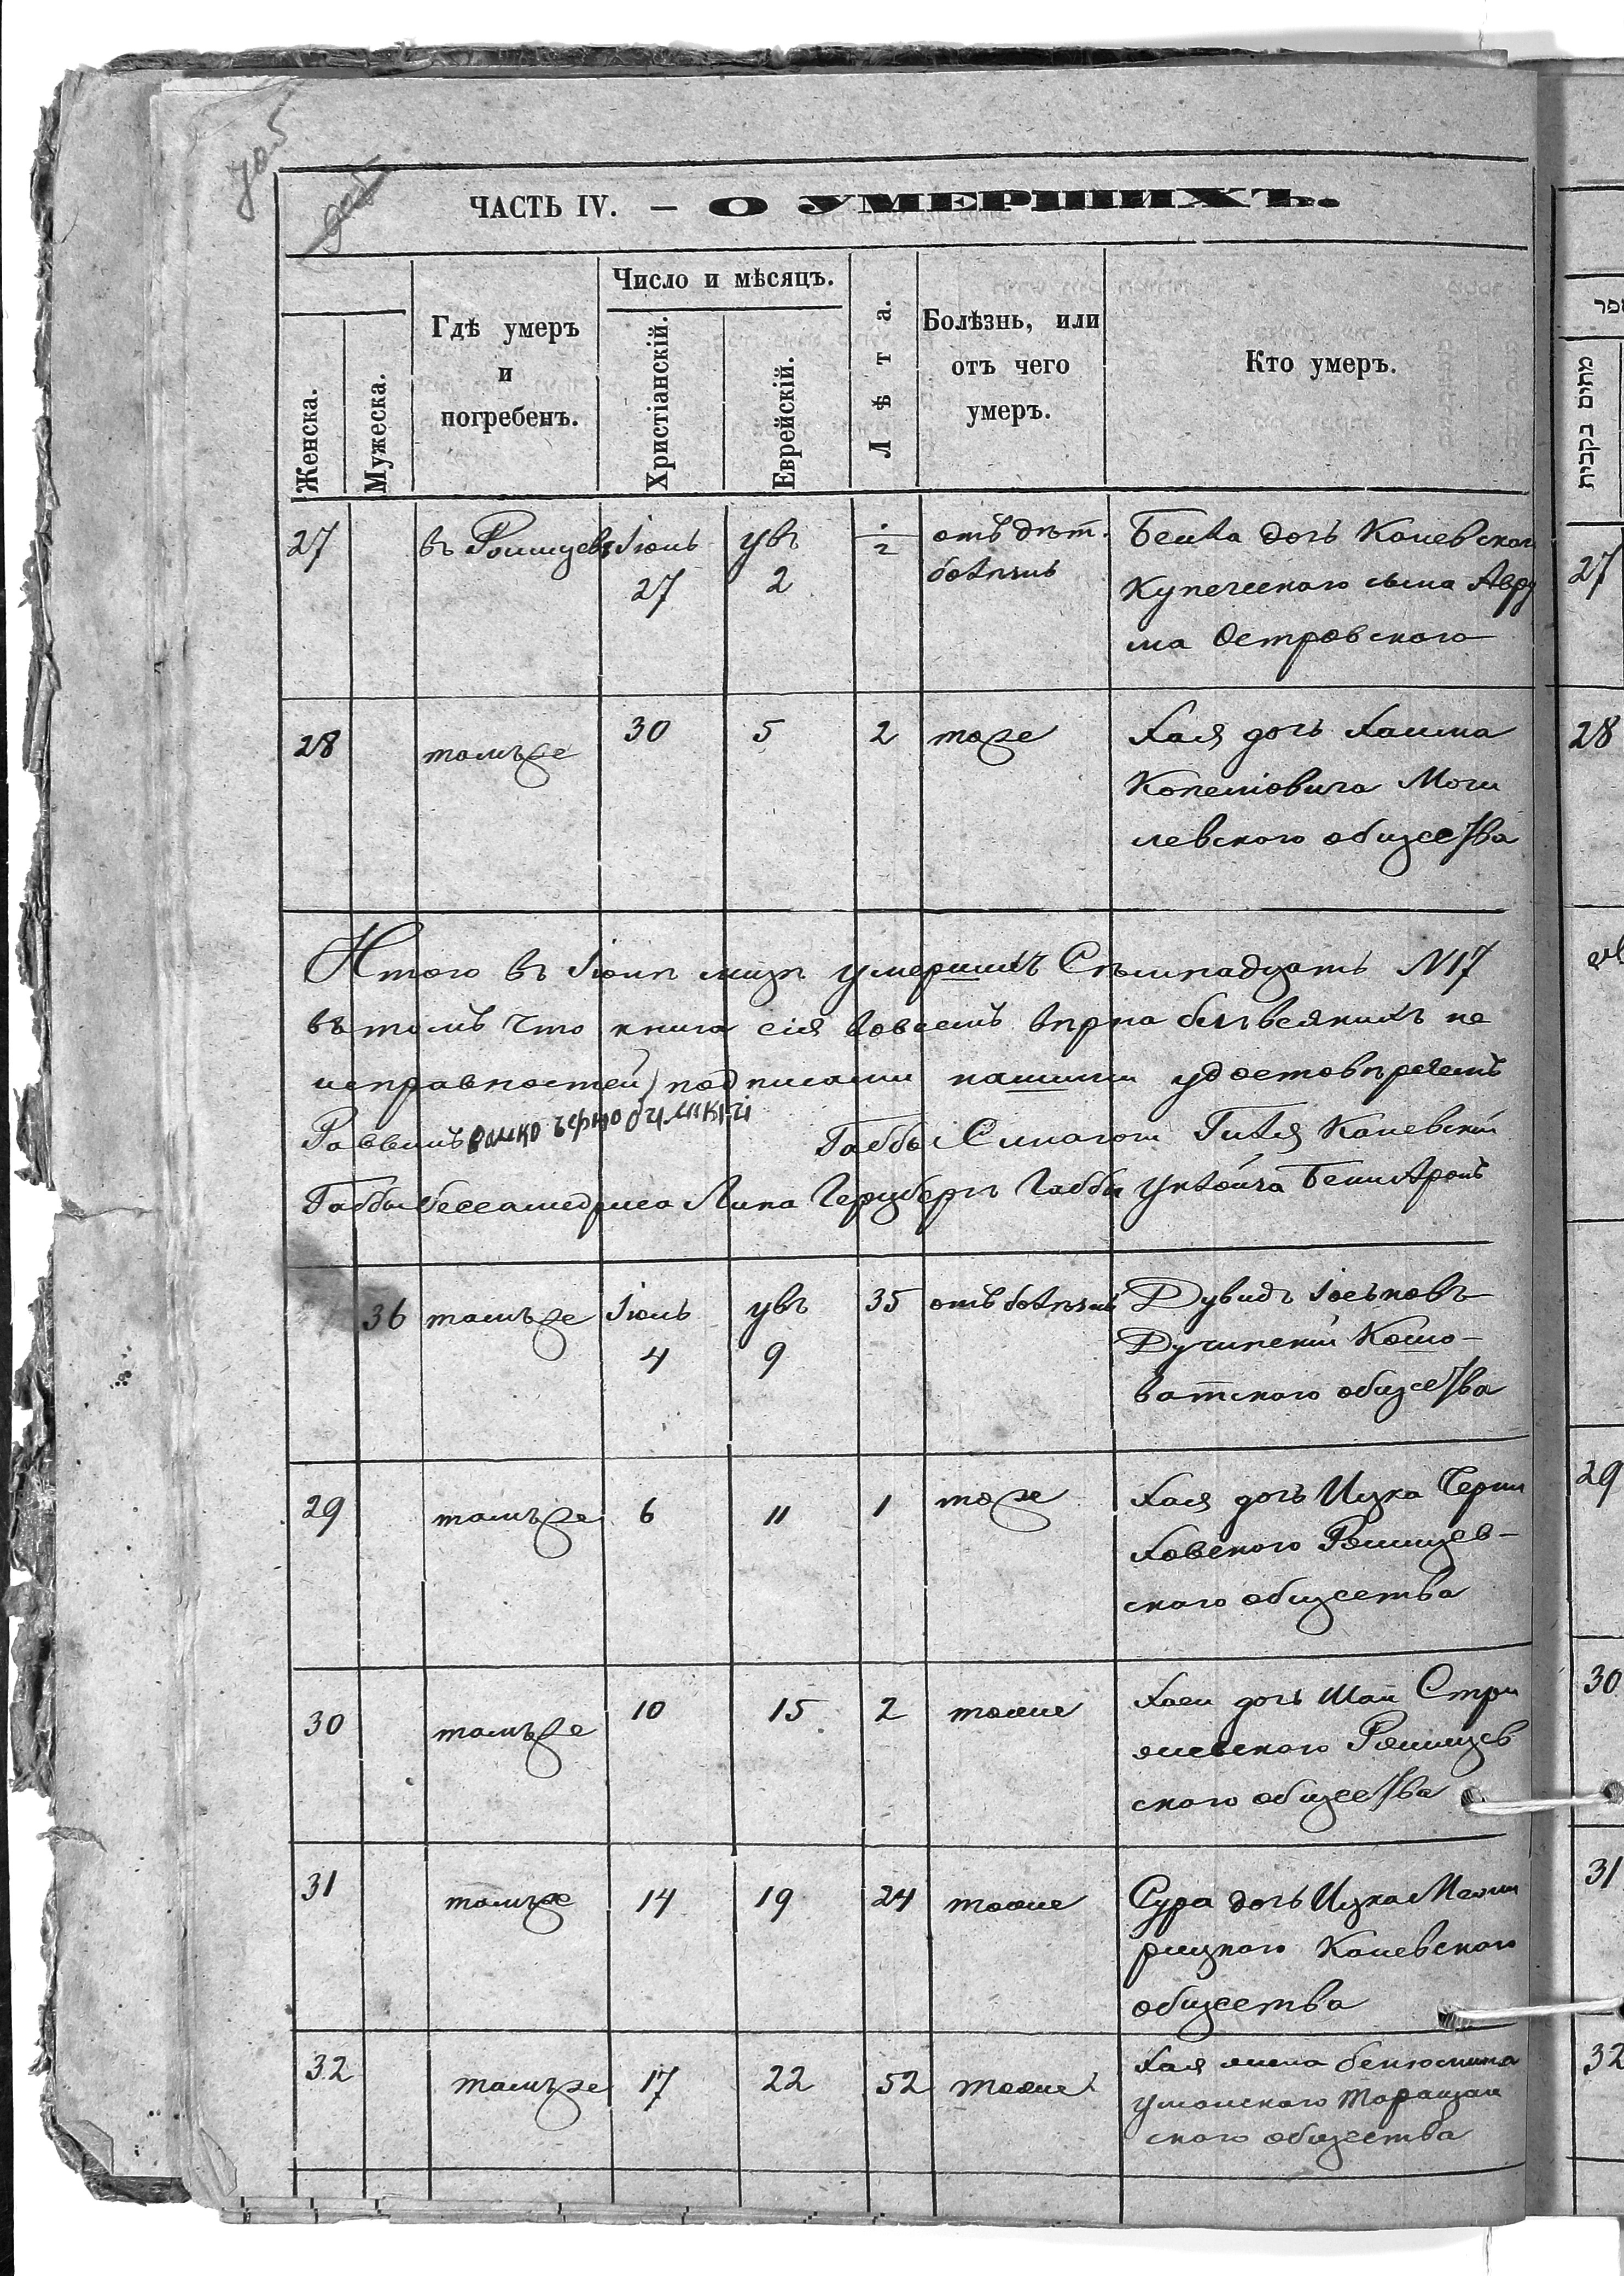 ЧАСТЬ IV. — О УМЕРШИХЪ.
Женска.
Мужеска.
Гдѣ умеръ
и
погребенъ.
Число и мѣсяцъ.
Христіанскій.
Еврейскій.
Лѣта.
Болѣзнь, или
отъ чего
умеръ.
Кто умеръ.
מתים נקבות
27 въ Ромищевѣ Іюнь 27 2 1/2 отъ дѣт. болѣзнь
Бейла дочь Каневского
Купеческого сына Авру
ма Островского
27
28 тамъже 30 5 2 тоже
Хая дочь Хаима
Копетовича Моги
левского общества
28
Итого въ Іюнѣ мцѣ умершихъ Сѣмнадцать N17
въ томъ что книга сія вовсемъ вѣрна безъ всякихъ не
исправностей) подписами нашими удостовѣряемъ
Раввинъ Габбы Синагоги Каневскій
Габбы бесгамедриса Герцберг Габбы
36 тамъже Іюль 4 9 35 отъ болѣзнь
Дувидъ Іоськовъ
Дучинскій Кошо-
ватского общества
29 тамъже 6 11 1 тоже
Хая дочь Ицка Черни
ховского Ромищев-
ского общества
29
30 тамъже 10 15 2 тоже
дочь Шаи Стри
жевского Ромищев
ского общества
30
31 тамъже 14 19 24 тоже
Сура дочь Ицка Межи
рицкого Каневского
общества
31
32 тамъже 17 22 52 тоже
Хая жена Бенюмина
Уманского Таращан
ского общества
32